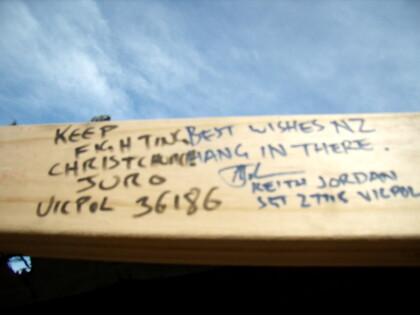 KEEP
FIGHTING
CHRISTCHURCH
JURO
VICPOL 36186
BEST WISHES NZ
HANG IN THERE.
KEITH JORDAN
VICPOL